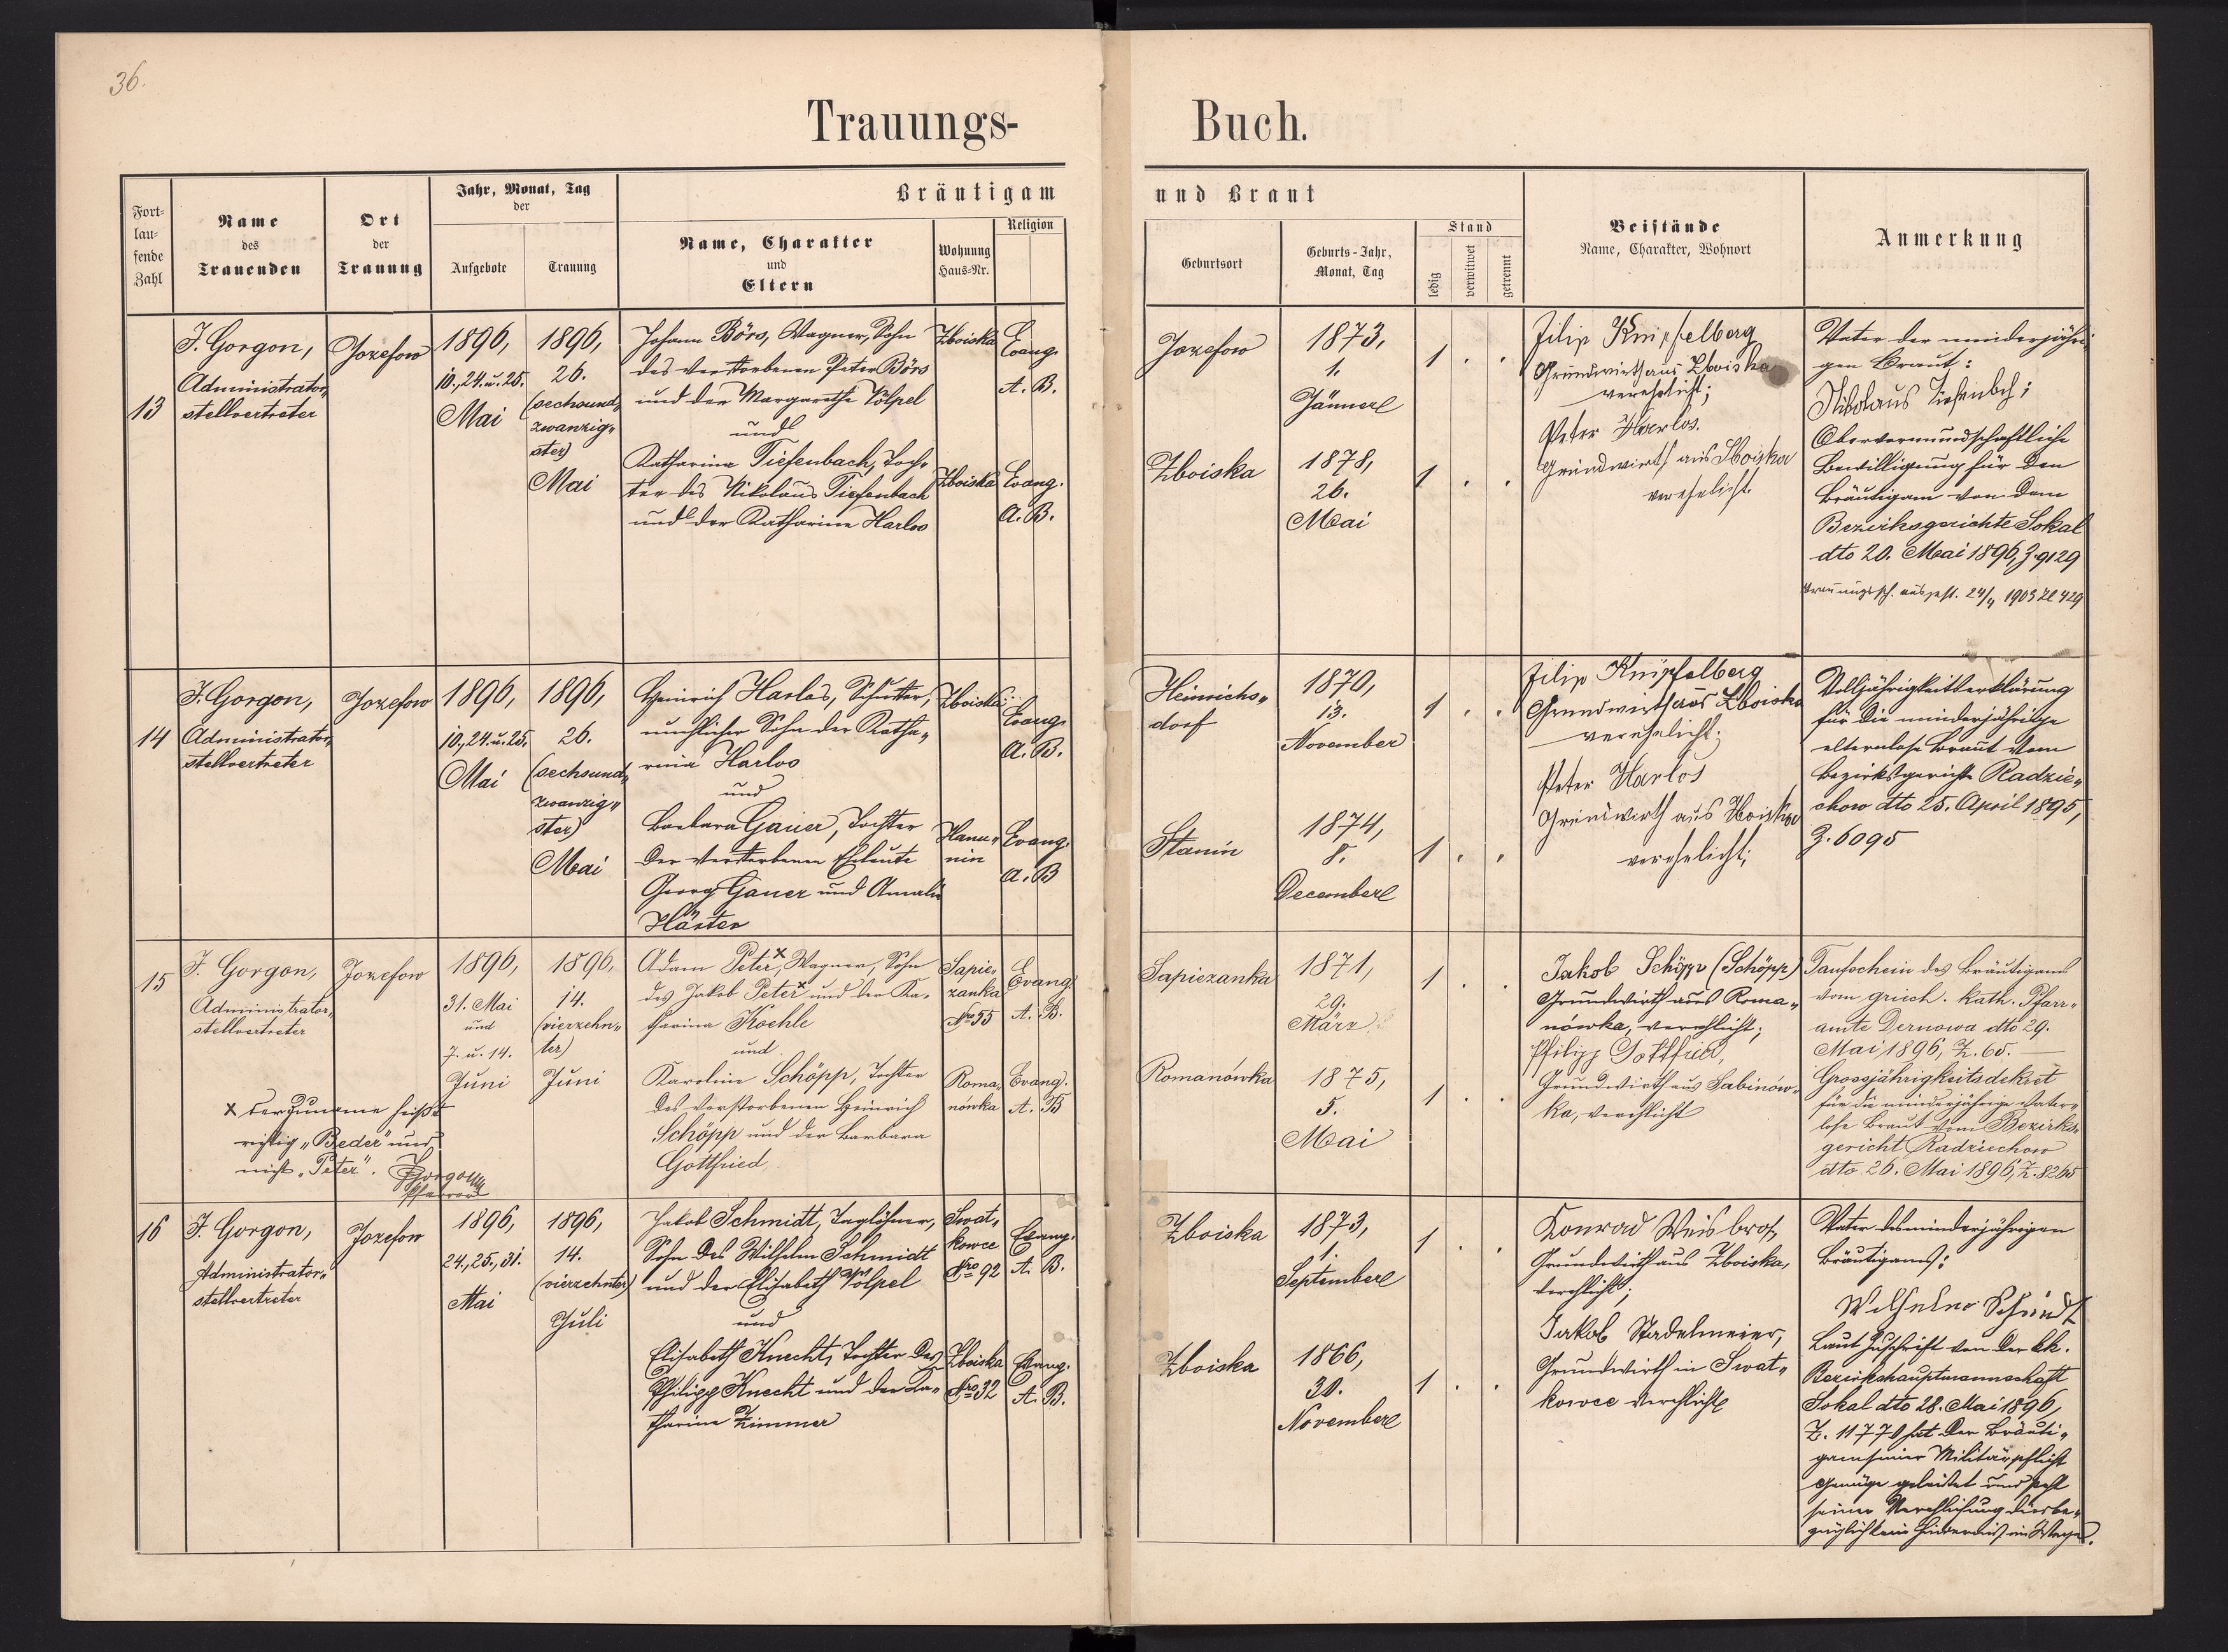 36.
Trauungs-Buch.
Fort-
lau-
fende
Zahl
Name
des
Trauenden
Ort
der
Trauung
Jahr, Monat, Tag
der
Aufgebote
Trauung
Bräutigam und Braut
Name, Charakter
und
Eltern
Wohnung
Haus-Nr.
Religion
Geburtsort
Geburts-Jahr,
Monat, Tag
Stand
ledig
verwitwet
getrennt
Beistände
Name, Charakter, Wohnort
Anmerkung
13
J. Gorgon,
Administrator„
stellvertreter
Jozefow
1896,
10., 24. u. 25.
Mai
1896,
26.
(sechsund„
zwanzig„
ster)
Mai
Johann Börs, Wagner, Sohn
des verstorbenen Peter Börs
und der Margarethe Völpel
und
Katharina Tiefenbach, Toch„
ter des Nikolaus Tiefenbach
und der Katharine Harlos
Zboiska
Evang.
A. B.
Zboiska
Evang.
A. B.
Jozefow
1873,
1.
Jänner
1 . .
Zboiska
1878,
26.
Mai
1 . .
Filip Knipfelberg
Grundwirth aus Zboiska
verehelicht;
Peter Harlos.
Grundwirth aus Zboiska
verehelicht.
Vater der minderjähri„
gen Braut:
Nikolaus Tiefenbch;
Obervormundschaftliche
Bewilligung für den
Bräutigam von dem
Bezirksgerichte Sokal
dto 20. Mai 1896, Z. 9129
Trauungssch. ausgest. 24/4 1903 Zl 429
14
J. Gorgon,
Administrator„
stellvertreter
Jozefow
1896,
10., 24. u. 25.
Mai
1896,
26.
(sechsund„
zwanzig„
ster)
Mai
Heinrich Harlos, Schuster,
unehlicher Sohn der Katha„
rina Harlos
und
Barbara Gauer, Tochter
der verstorbenen Eheleute
Georg Gauer und Amalie
Härter
Zboiska
Evang.
A. B.
Hanu„
nin
Evang.
A. B
Heinrichs„
dorf
1870,
13.
November
1 . .
Stanin
1874,
8.
December
1 . .
Filip Knipfelberg
Grundwirth aus Zboiska
verehelicht;
Peter Harlos
Grundwirth aus Zboiska
verehelicht;
Volljährigkeitserklärung
für die minderjährige
elternlose Braut vom
Bezirksgerichte Radzie„
chow dto 25. April 1895,
Z. 6095
15
J. Gorgon,
Administrator„
stellvertreter
Jozefow
1896,
31. Mai
und
7. u. 14.
Juni
1896,
14.
(vierzehn„
ter)
Juni
Adam Peter x, Wagner, Sohn
des Jakob Peter x und der Ka„
tharina Koehle
und
Karoline Schöpp, Tochter
des verstorbenen Heinrich
Schöpp und der Barbara
Gottfried
Sapie„
zanka
Nro 55
Evang.
A. B.
Roma„
nówka
Evang.
A. B
x Der Zuname heißt
richtig „Beder" und
nicht „Peter". JGorgon
Pfarrer
Sapiezanka
1871,
29.
März
1 . .
Romanówka
1875,
5.
Mai
1 . .
Jakob Schöpp (Schöpp)
Grundwirth aus Roma„
nówka, verehlicht;
Philipp Gottfried,
Grundwirth aus Sabinów„
ka, verehlicht
Taufschein des Bräutigams
vom griech. kath. Pfarr„
amte Dernowa dto 29.
Mai 1896, Z. 65.
Grossjährigkeitsdekret
für die minderjährige vater„
lose Braut vom Bezirks„
gericht Radziechow
dto 26. Mai 1896, Z. 8265
16
J. Gorgon,
Administrator„
stellvertreter
Jozefow
1896,
24., 25., 31.
Mai
1896,
14.
(vierzehnter)
Juli
Jakob Schmidt, Taglöhner,
Sohn des Wilhelm Schmidt
und der Elisabeth Völpel
und
Elisabeth Knecht, Tochter des
Philipp Knecht und der Ka„
tharine Zimmer
Swat„
kowce
Nro 92
Evang.
A. B.
Zboiska
Nro 32
Evang.
A. B.
Zboiska
1873,
1.
September
1 . .
Zboiska
1866,
30.
November
1 . .
Konrad Weisbrot,
Grundwirth aus Zboiska,
verehlicht;
Jakob Stadelmeier,
Grundwirth in Swat„
kowce verehlicht
Vater des minderjährigen
Bräutigams:
Wilhelm Schmidt
Laut Zuschrift von der kk.
Bezirkshauptmannschaft
Sokal dto 28. Mai 1896,
Z. 11770 hat der Bräuti„
gam seiner Militärpflicht
Genüge geleistet und steht
seiner Verehlichung diesbe„
züglich kein Hinderniß im Wege.